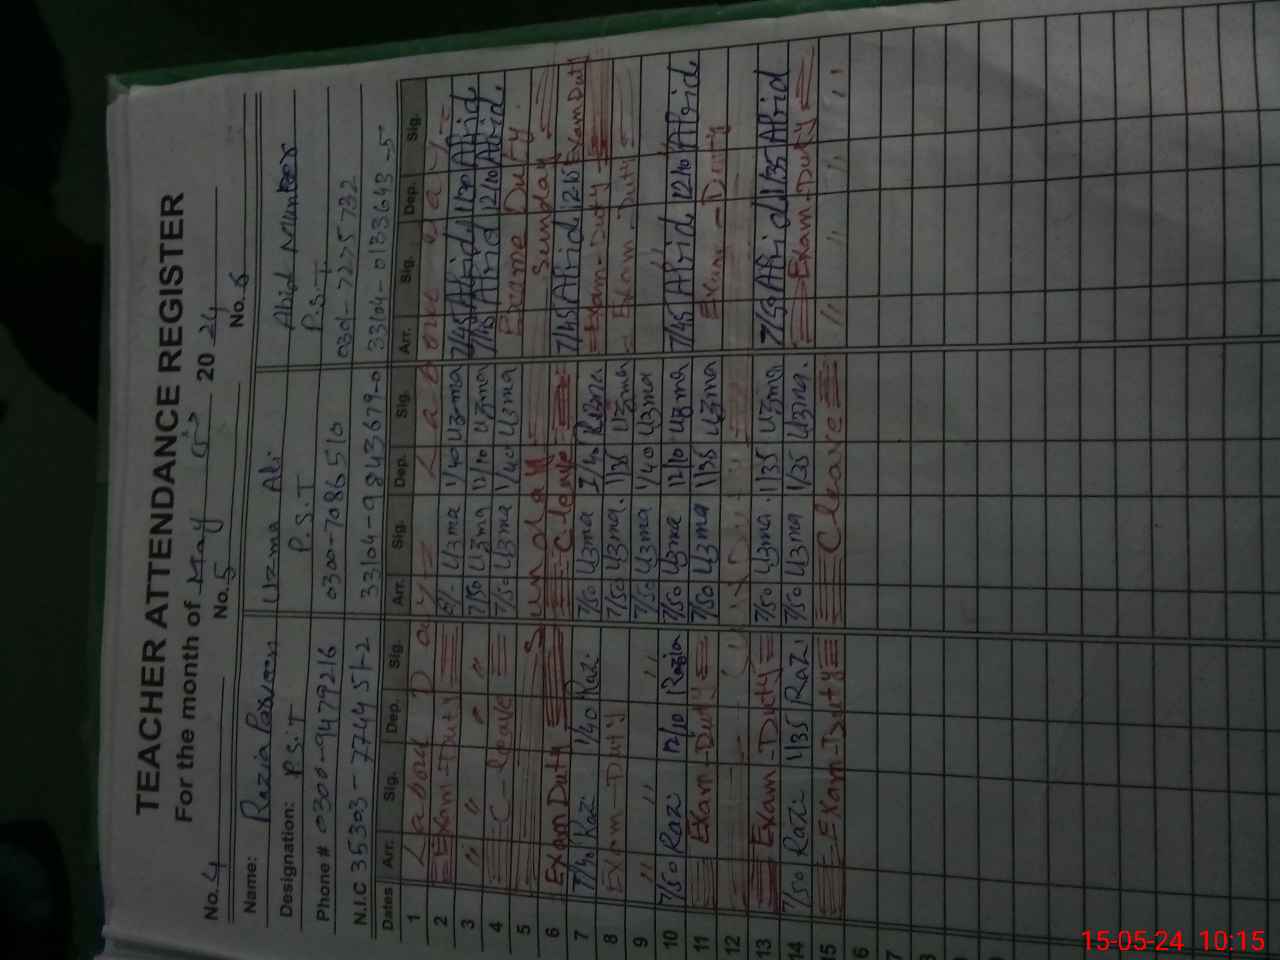 TEACHER ATTENDANCE REGISTER
For the month of May 2024
No. 4 No. 5 No. 6
Name: Razia Uzma Ali Abid
Designation: P.S.T P.S.T P.S.T
Phone # 0300-9479216 0300-7086510 0301-7225732
N.I.C 35303-7744512 33104-9843679-0 33104-0133643-5
Dates Arr. Sig. Dep. Sig. Arr. Sig. Dep. Sig. Arr. Sig. Dep. Sig.
1 Labour Day Labour Day
2 Exam-Duty Uzma 1/40 Uzma 7/45 Abid Abid
3 " " " " 7/50 Uzma 12/10 Uzma 7/45 Abid 12/10 Abid.
4 C-leave 7/50 Uzma 1/40 Uzma Duty
5 Sunday Sunday
6 Exam Duty C leave 7/45 Abid 12/15 Exam Duty
7 7/40 Raz. 1/40 Raz. 7/50 Uzma 1/40 Exam-Duty
8 Exam-Duty 7/50 Uzma. 1/35 Uzma Exam-Duty
9 " " " 7/50 Uzma 1/40 Uzma
10 7/50 Razi 12/10 Razia 7/50 Uzma 12/10 Uzma 7/45 Abid 12/10 Abid
11 Exam-Duty 7/50 Uzma 1/35 Uzma Exam-Duty
12
13 Exam-Duty 7/50 Uzma. 1/35 Uzma 7/50 Abid 1/35 Abid
14 7/50 Razi 1/35 Razi 7/50 Uzma 1/35 Uzma. Exam-Duty
15 Exam-Duty C leave " " " "
15-05-24 10:15